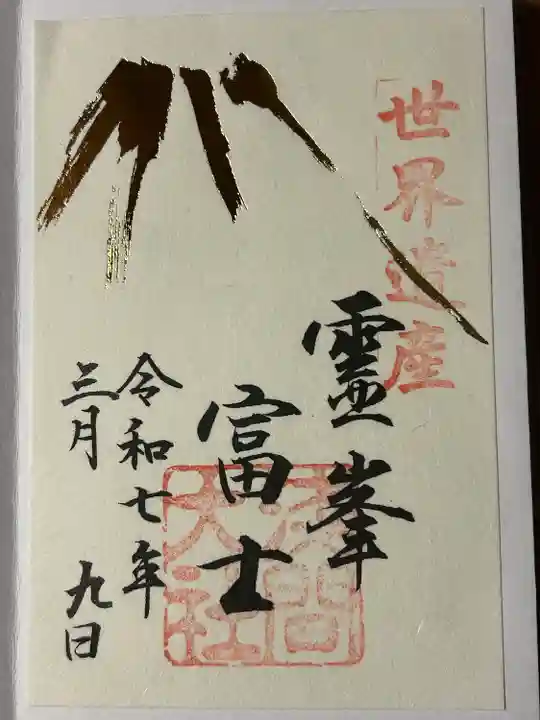 世界遺産
靈峯
富士
令和七年
三月 九日
浅間
大社